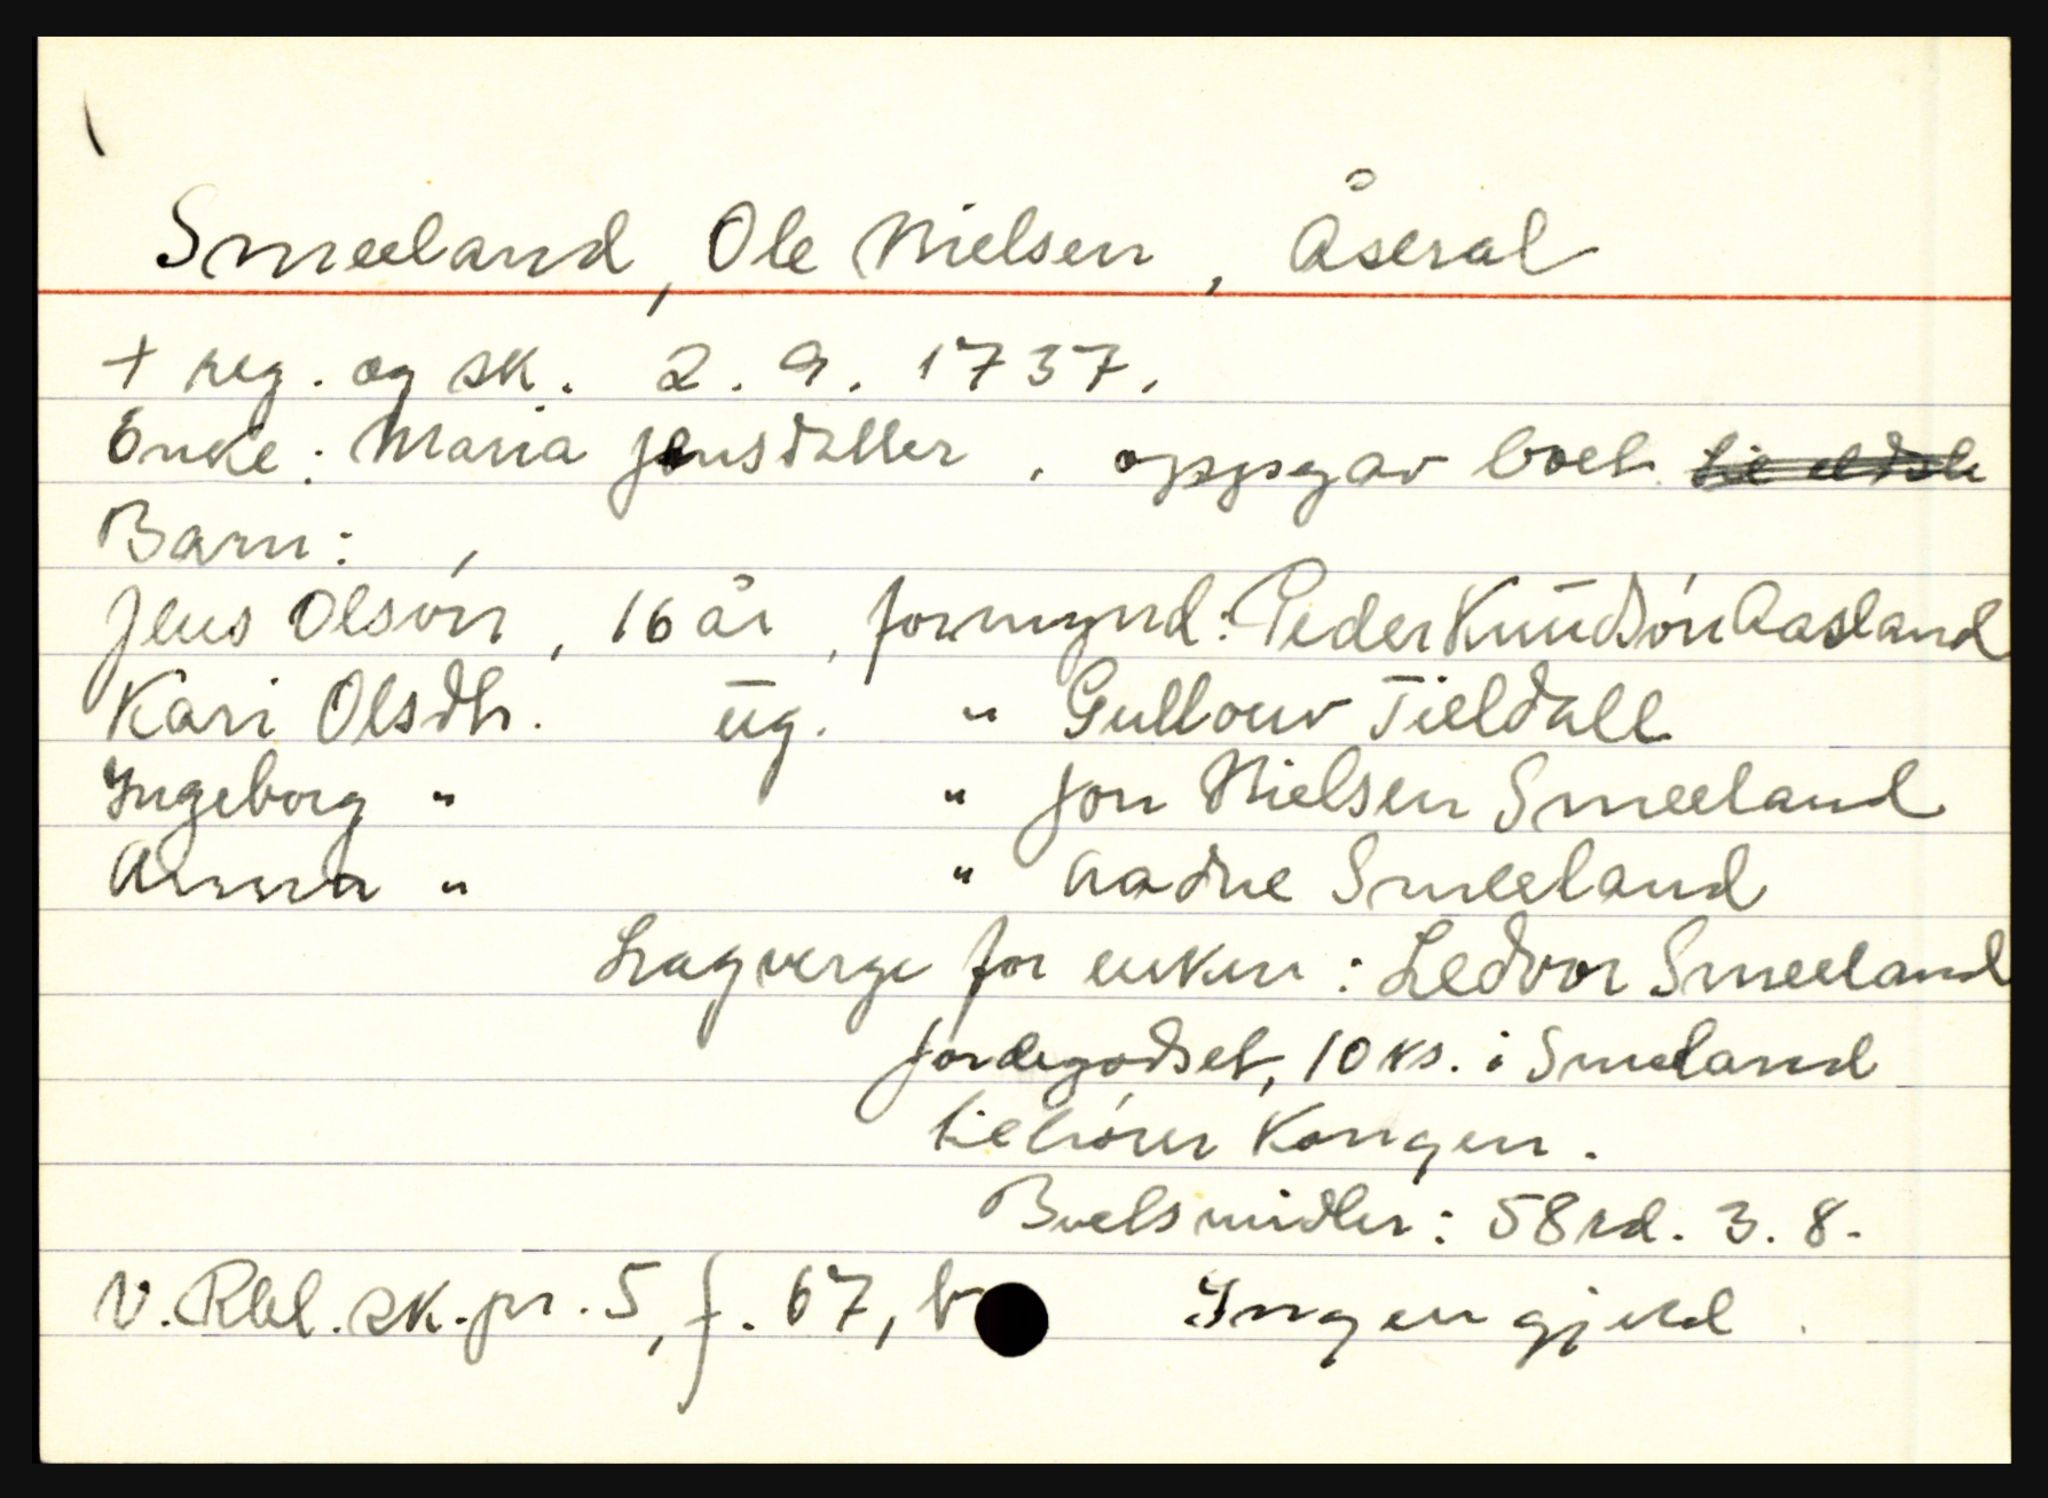 Smeeland, Ole Nielsen, Åseral
+ reg. og sk. 2. 9. 1737.
Enke: Maria Jensdatter. oppgav boet
Barn:
Jens Olsón, 16 år, formynd: Peder Knudsón Aasland
Kari Olsdtr. ug. " Gullouv Tieldall
Ingeborg " " Jon Nielsen Smeeland
Anna " " Aadne Smeeland
Lagverge for enken: Ledvor Smeeland
Jordegodset, 10 ks. i Smeland
tilhörer Kongen.
Boets midler: 58 rd. 3. 8.
V. Rbl. sk. pr. 5, f. 67, b Ingen gjeld.